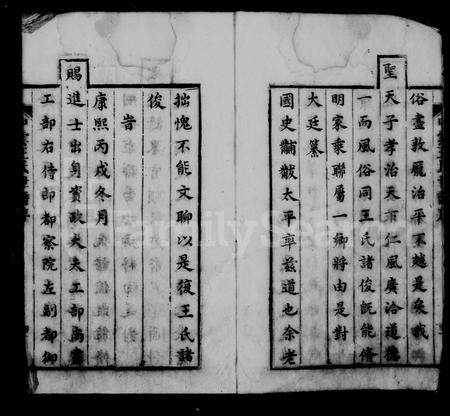 俗盡敦龎治平不越是矣我
聖天子孝治天下仁風廣洽道德
一而風俗同王氏諸俊旣能脩
明家乘聯屬一鄉將由是對
大廷纂
國史黼黻太平率兹道也余老
拙愧不能文聊以是復王氏諸
俊
旹
康熙丙戌冬月
賜進士出身資政大夫工部尚書
工部右侍郎都察院左副都御
FamilySearch